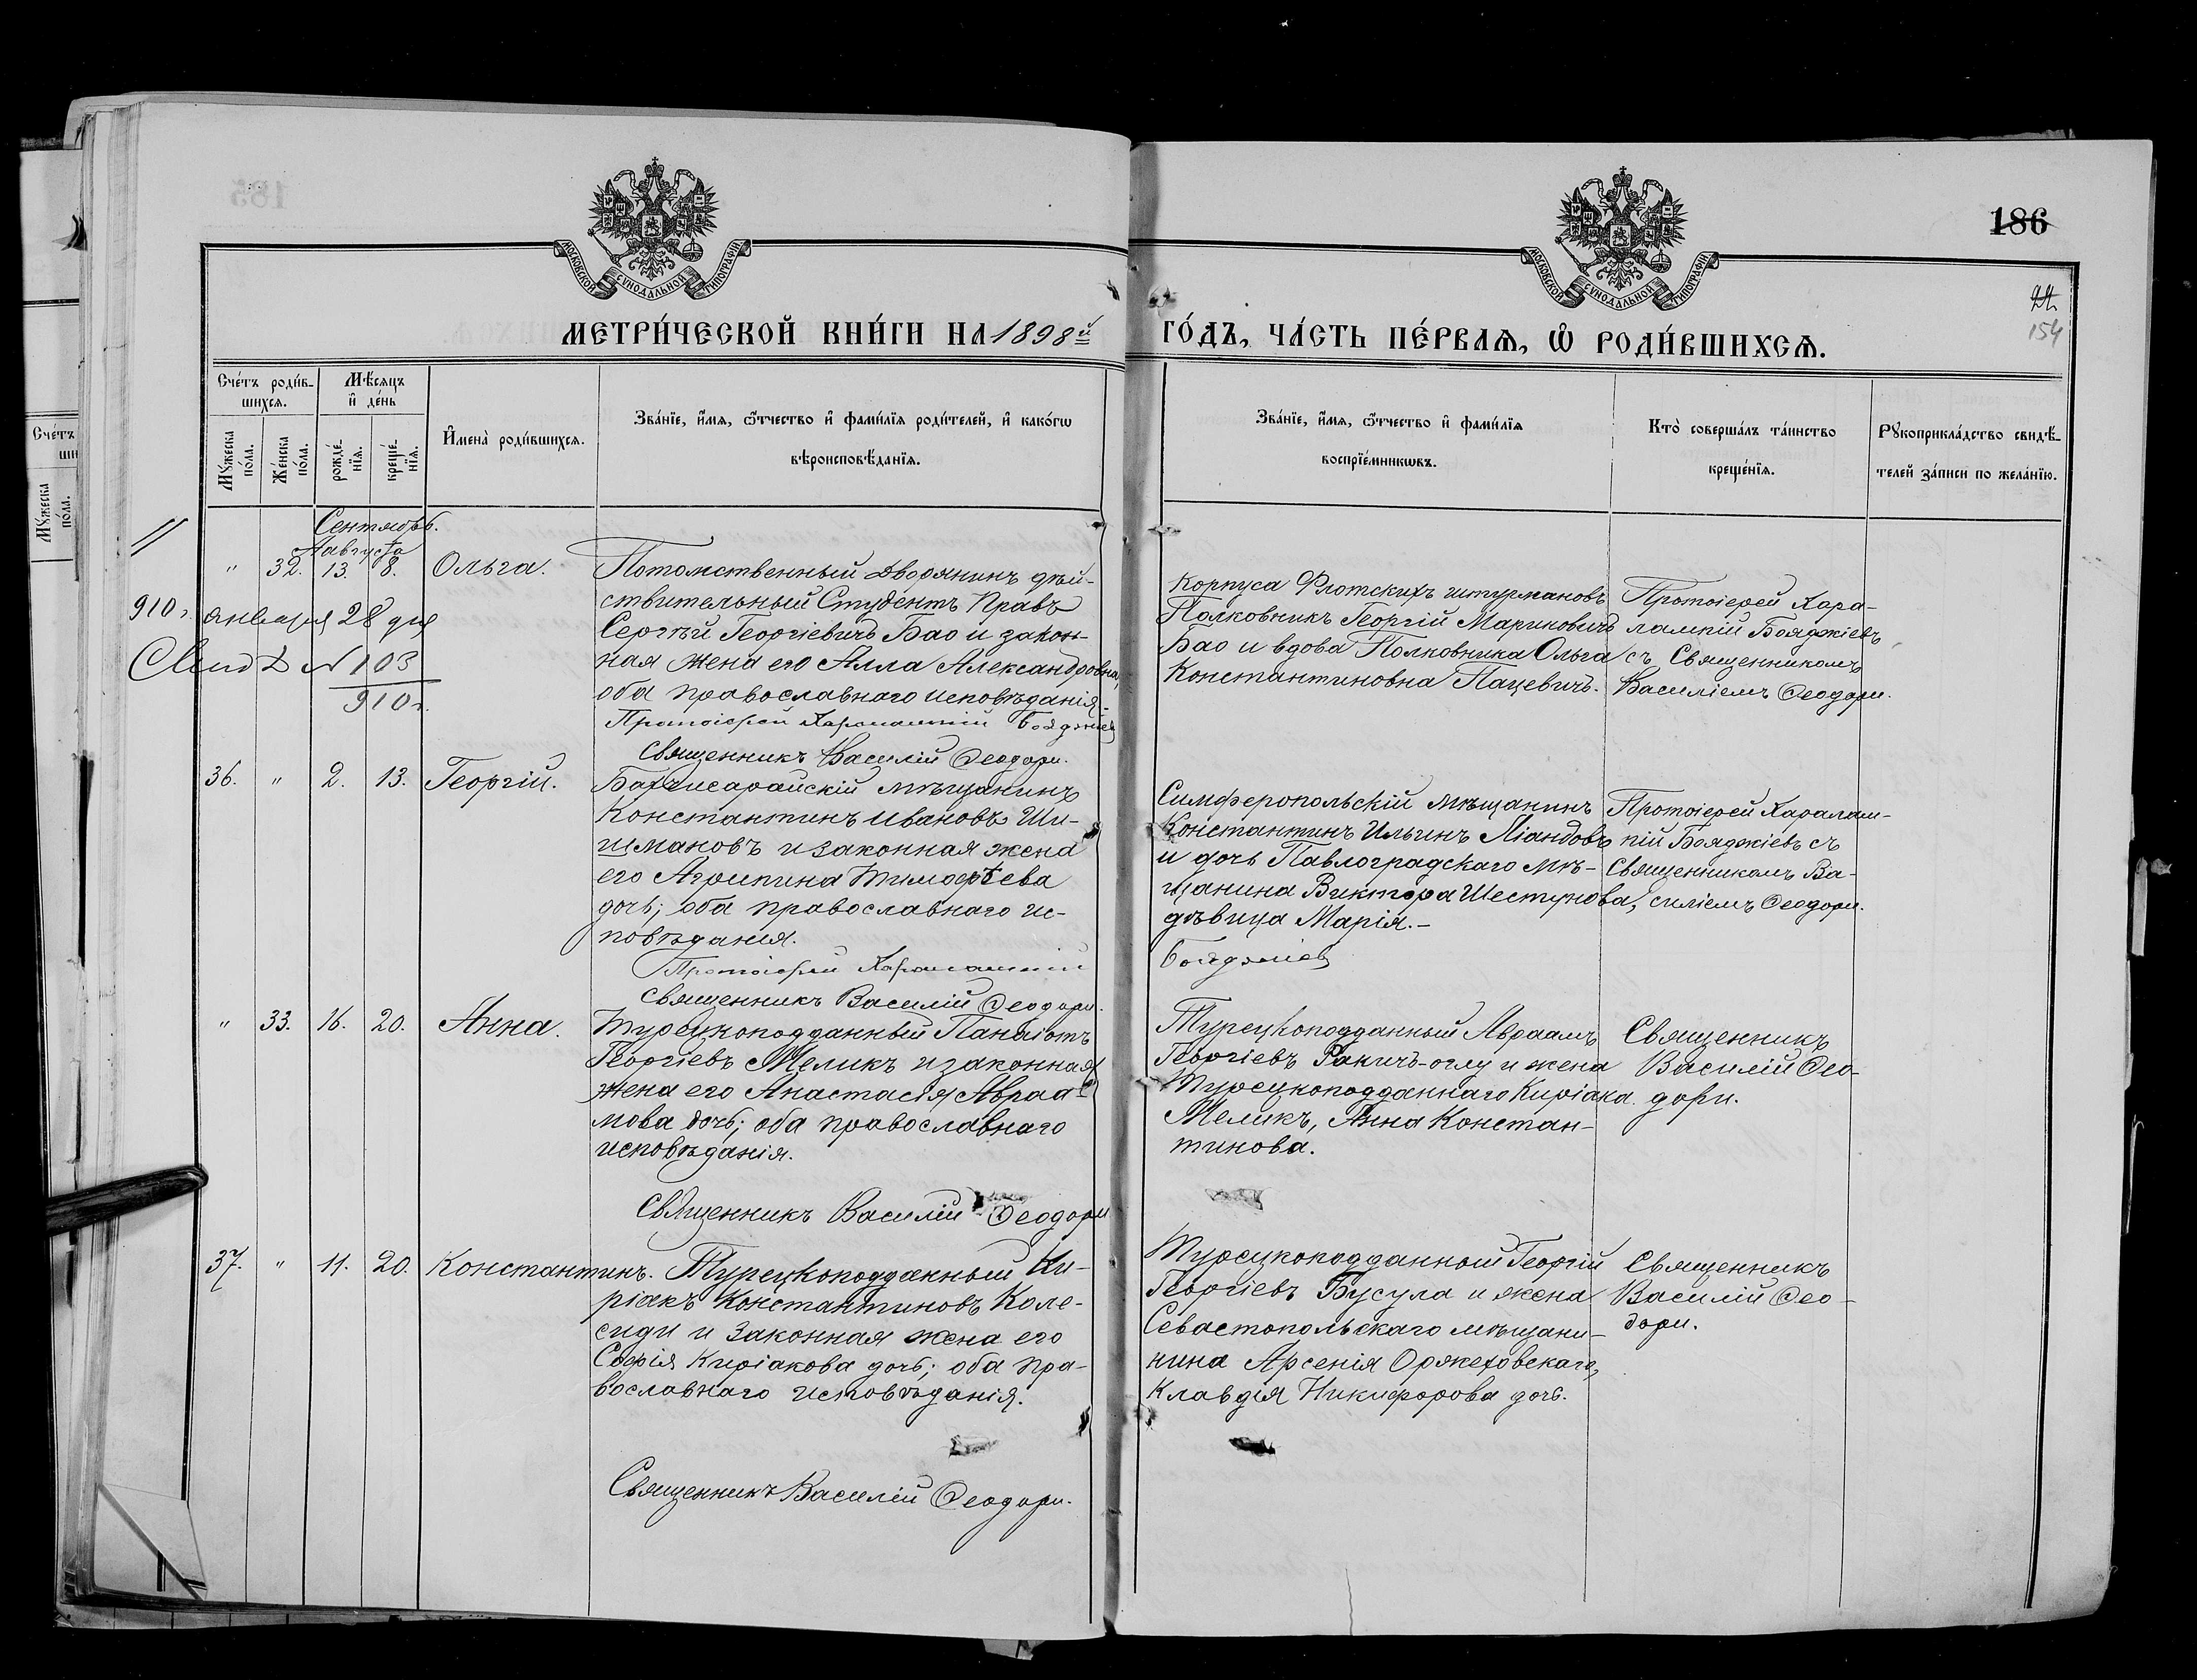 185
186
94
154
МОСКОВСКОЙ СѴНОДАЛЬНОЙ ТИПОГРАФІИ
МОСКОВСКОЙ СѴНОДАЛЬНОЙ ТИПОГРАФІИ
МЕТРИ́ЧЕСКОЙ КНИ́ГИ НА 1898й
ГО́ДЪ, ЧА́СТЬ ПЕ́РВАѦ, Ѽ РОДИ́ВШИХСѦ.
Сче́тъ роди́в-
шихсѧ.
Мѣ́сѧцъ
и҆ де́нь
Мꙋ́жеска по́ла.
Же́нска по́ла.
рожде́-
нїѧ.
креще́-
нїѧ.
И҆мена̀ роди́вшихсѧ.
Зва́нїе, и҆́мѧ, ѻ҆́тчество и҆ фами́лїѧ роди́телей, и҆ како́гѡ
вѣроисповѣ́данїѧ.
Зва́нїе, и҆́мѧ, ѻ҆́тчество и҆ фами́лїѧ
воспрїе́мникѡвъ.
Кто̀ соверша́лъ та́инство
креще́нїѧ.
Рꙋкоприкла́дство свидѣ́-
телей за́писи по жела́нїю.
Сче́тъ
ши
Мꙋ́жеска
по́ла.
Сентябрь.
Августа
" 32. 13. 8. Ольга.
910 г. января 28 дня
Свид № 103
910 г.
Потомственный Дворянинъ дѣй-
ствительный Студентъ Правъ
Сергѣй Георгіевичъ Бао и закон-
ная жена его Алла Александровна,
оба православнаго исповѣданія.
Протоіерей Харалампій Бояджіев
Священникъ Василій Ѳеодори.
Корпуса Флотскихъ штурмановъ
Полковникъ Георгій Мариновичъ
Бао и вдова Полковника Ольга
Константиновна Пацевичъ.
Протоіерей Хара-
лампій Бояджіевъ
съ Священникомъ
Василіемъ Ѳеодори.
36. " 2. 13. Георгій.
Бахчисарайскій мѣщанинъ
Константинъ Ивановъ Ши-
шмановъ и законная жена
его Агрипина Тимофѣева
дочь; оба православнаго ис-
повѣданія.
Протоіерей Харалампій
Священникъ Василій Ѳеодори.
Симферопольскій мѣщанинъ
Константинъ Ильинъ Ліандовъ
и дочь Павлоградскаго мѣ-
щанина Виктора Шестунова,
дѣвица Марія.-
Бояджіев
Протоіерей Харалам-
пій Бояджіевъ съ
Священникомъ Ва-
силіемъ Ѳеодори.
" 33. 16. 20. Анна.
Турецкоподданный Панаіотъ
Георгіевъ Меликъ и законная
жена его Анастасія Авраа-
мова дочь; оба православнаго
исповѣданія.
Священникъ Василій Ѳеодори
Турецкоподданный Авраамъ
Георгіевъ Ракичъ-оглу и жена
Турецкоподданнаго Киріака
Меликъ, Анна Констан-
тинова.
Священникъ
Василій Ѳео-
дори.
37. " 11. 20. Константинъ.
Турецкоподданный Ки-
ріакъ Константиновъ Коле-
сиди и законная жена его
Софія Киріакова дочь; оба пра-
вославнаго исповѣданія.
Священникъ Василій Ѳеодори.
Турецкоподданный Георгій
Георгіевъ Бусула и жена
Севастопольскаго мѣщани-
нина Арсенія Оржеховскаго,
Клавдія Никифорова дочь.
Священникъ
Василій Ѳео-
дори.